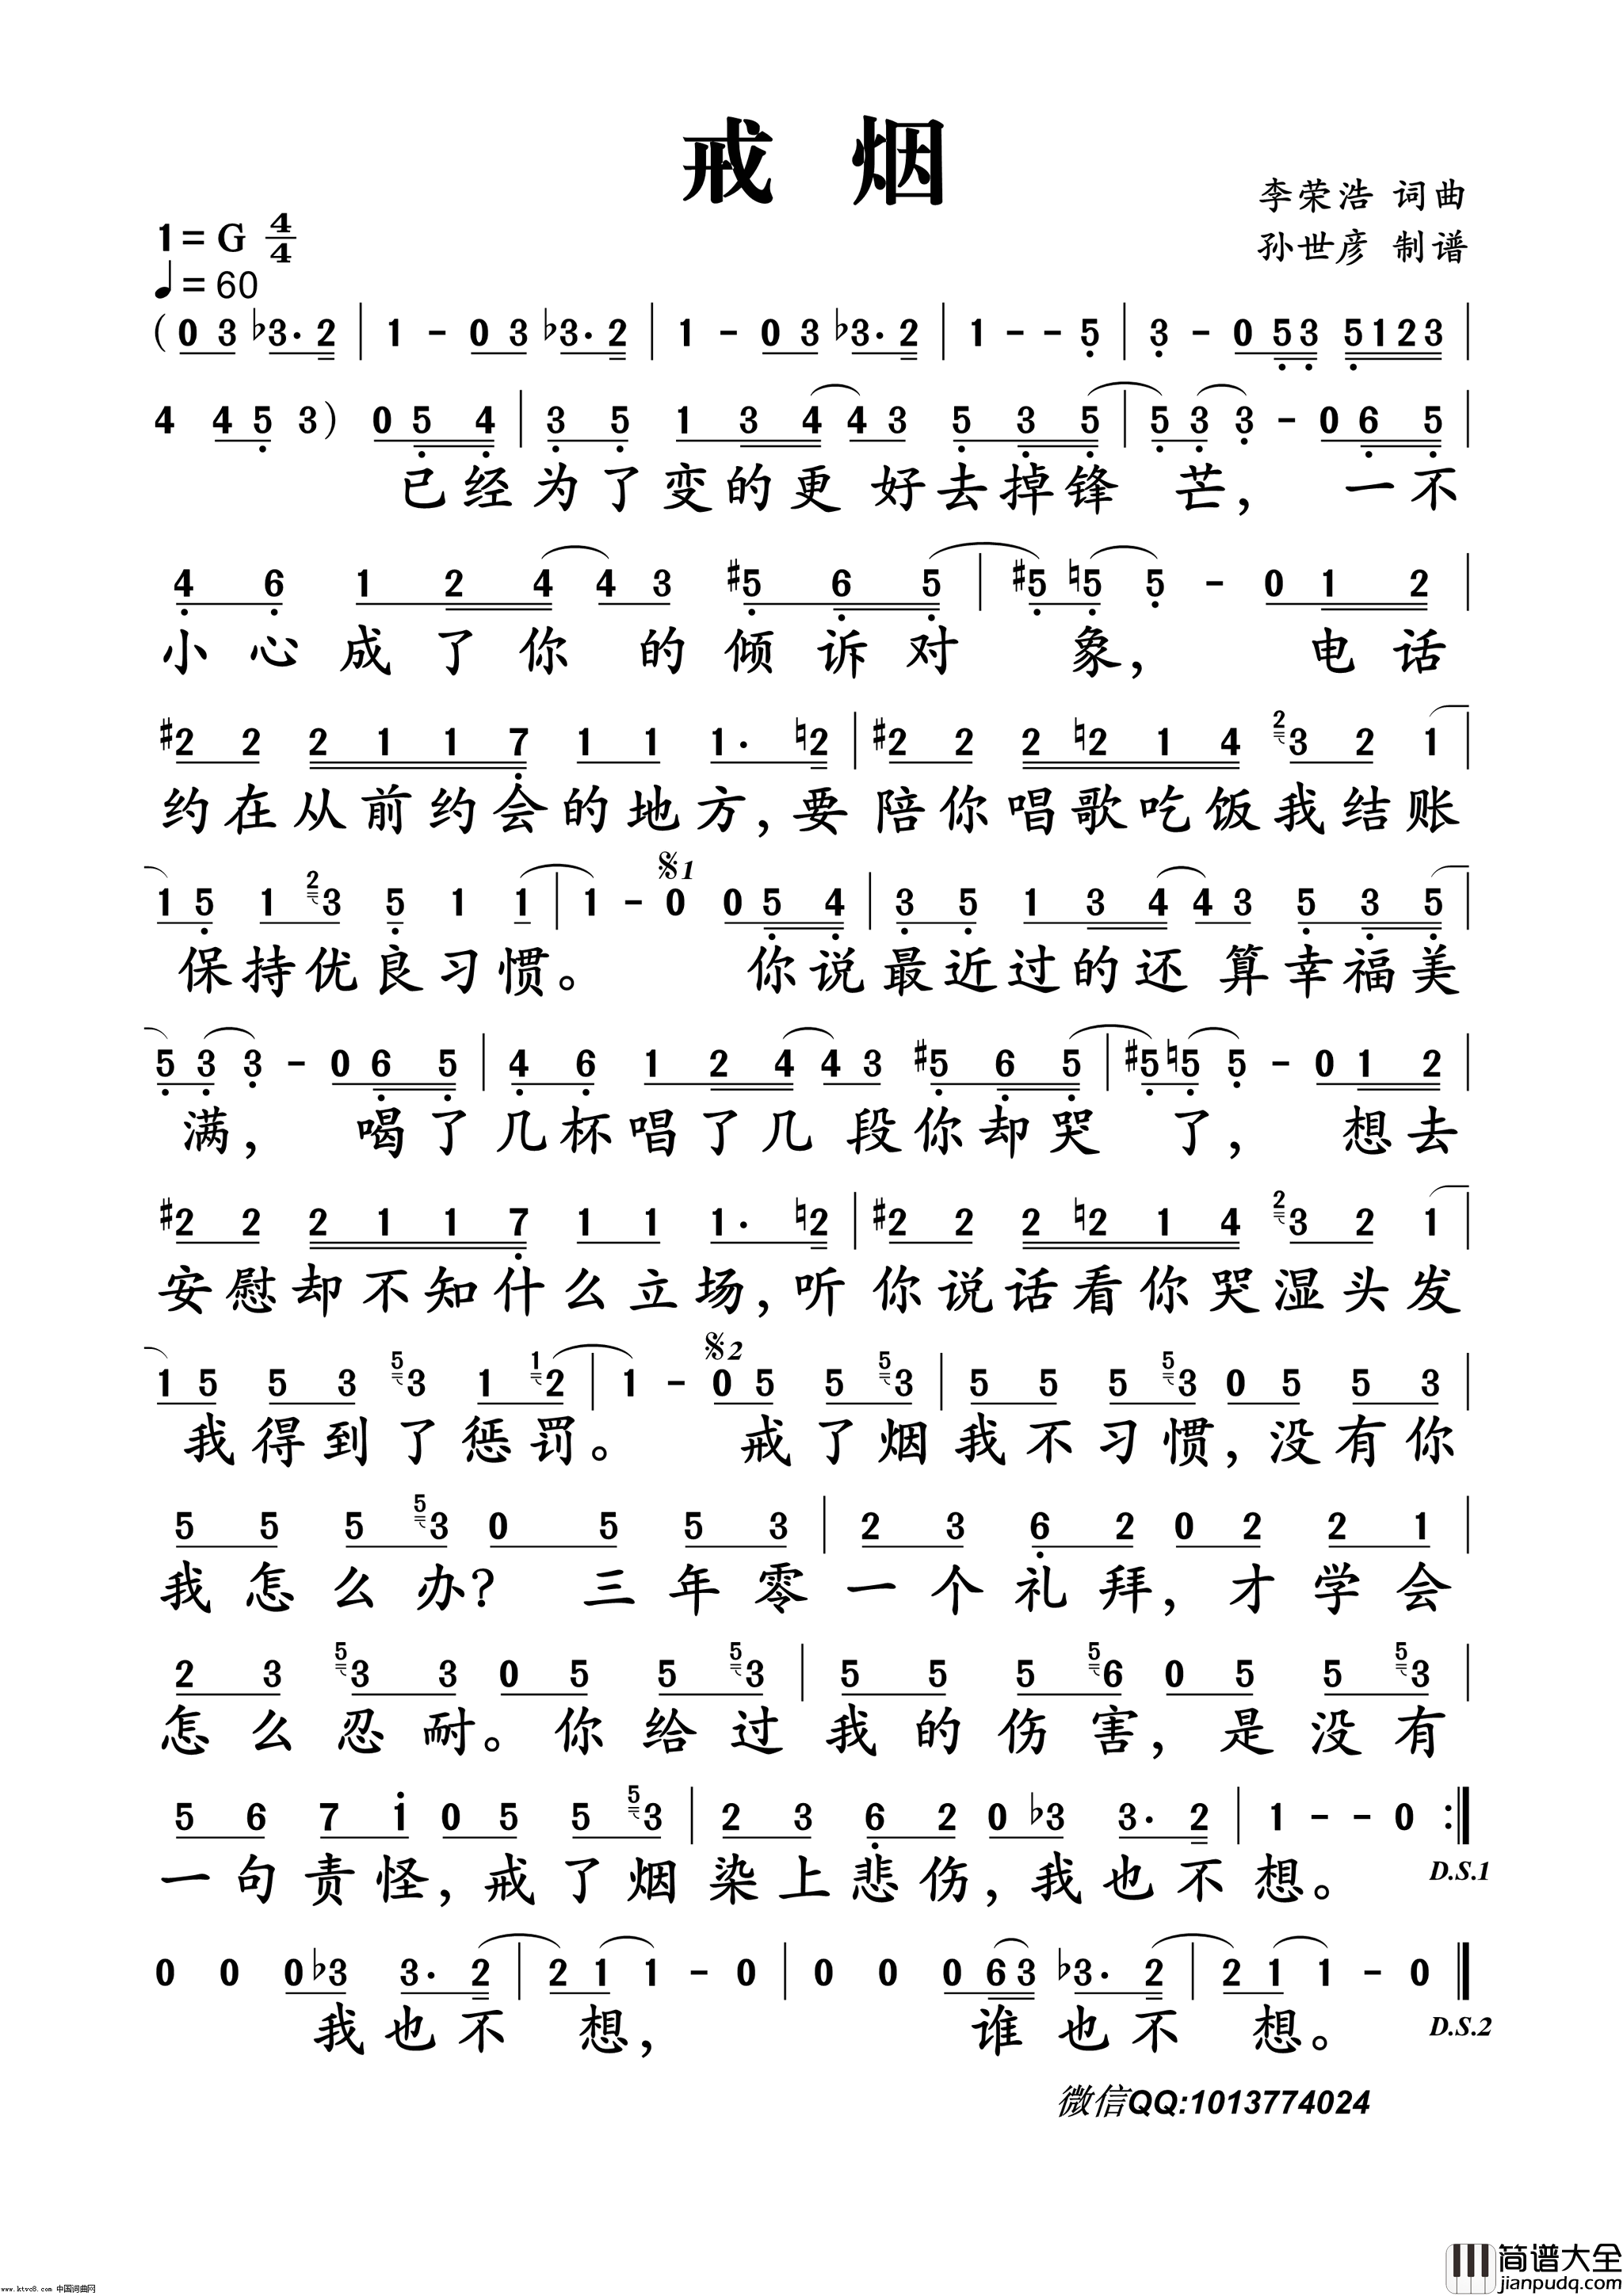 戒 烟
李荣浩 词曲
1= G 4/4
孙世彦 制谱
♩= 60
( 0 3 ♭3· 2 | 1 - 0 3 ♭3· 2 | 1 - 0 3 ♭3· 2 | 1 - - 5 | 3 - 0 5 3 5 1 2 3 |
4 4 5 3 ) 0 5 4 | 3 5 1 3 4 4 3 5 3 5 | 5 3 3 - 0 6 5 |
已经为了变的更 好去掉锋 芒， 一不
4 6 1 2 4 4 3 #5 6 5 | #5 ♮5 5 - 0 1 2 |
小心成了你 的倾诉对 象， 电话
#2 2 2 1 1 7 1 1 1· ♮2 | #2 2 2 ♮2 1 4 2 3 2 1 |
约在从前约会的地方，要 陪你唱歌吃饭我结账
𝄋1
1 5 1 2 3 5 1 1 | 1 - 0 0 5 4 | 3 5 1 3 4 4 3 5 3 5 |
保持优良习惯。 你说最近过的还 算幸福美
5 3 3 - 0 6 5 | 4 6 1 2 4 4 3 #5 6 5 | #5 ♮5 5 - 0 1 2 |
满， 喝了几杯唱了几 段你却哭 了， 想去
#2 2 2 1 1 7 1 1 1· ♮2 | #2 2 2 ♮2 1 4 2 3 2 1 |
安慰却不知什么立场，听 你说话看你哭湿头发
𝄋2
1 5 5 3 5 3 1 1 2 | 1 - 0 5 5 5 3 | 5 5 5 5 3 0 5 5 3 |
我得到了惩罚。 戒了烟我不习惯，没有你
5 5 5 5 3 0 5 5 3 | 2 3 6 2 0 2 2 1 |
我怎么办？ 三年零一个礼拜，才学会
2 3 5 3 3 0 5 5 5 3 | 5 5 5 5 6 0 5 5 5 3 |
怎么忍耐。你给过我的伤害，是没有
5 6 7 i 0 5 5 5 3 | 2 3 6 2 0 ♭3 3· 2 | 1 - - 0 :‖
一句责怪，戒了烟染上悲伤，我也不想。 D.S.1
0 0 0 ♭3 3· 2 | 2 1 1 - 0 | 0 0 0 6 3 ♭3· 2 | 2 1 1 - 0 ‖
我也不 想， 谁也不 想。 D.S.2
微信QQ:1013774024
简谱大全
jianpudq.com
www.ktvc8.com 中国词曲网